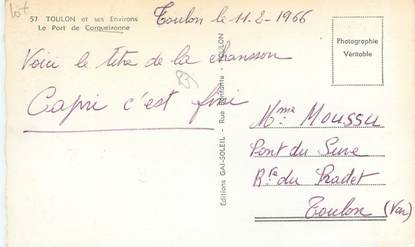 lot
57 TOULON et ses Environs
Le Port de Carqueiranne
Toulon le 11-2-1966
Voici le titre de la chanson
Capri c'est fini
Editions GAI-SOLEIL - Rue - TOULON
Photographie
Véritable
Mme MOUSSU
Pont du Suve
Rte du Pradet
Toulon (Var)